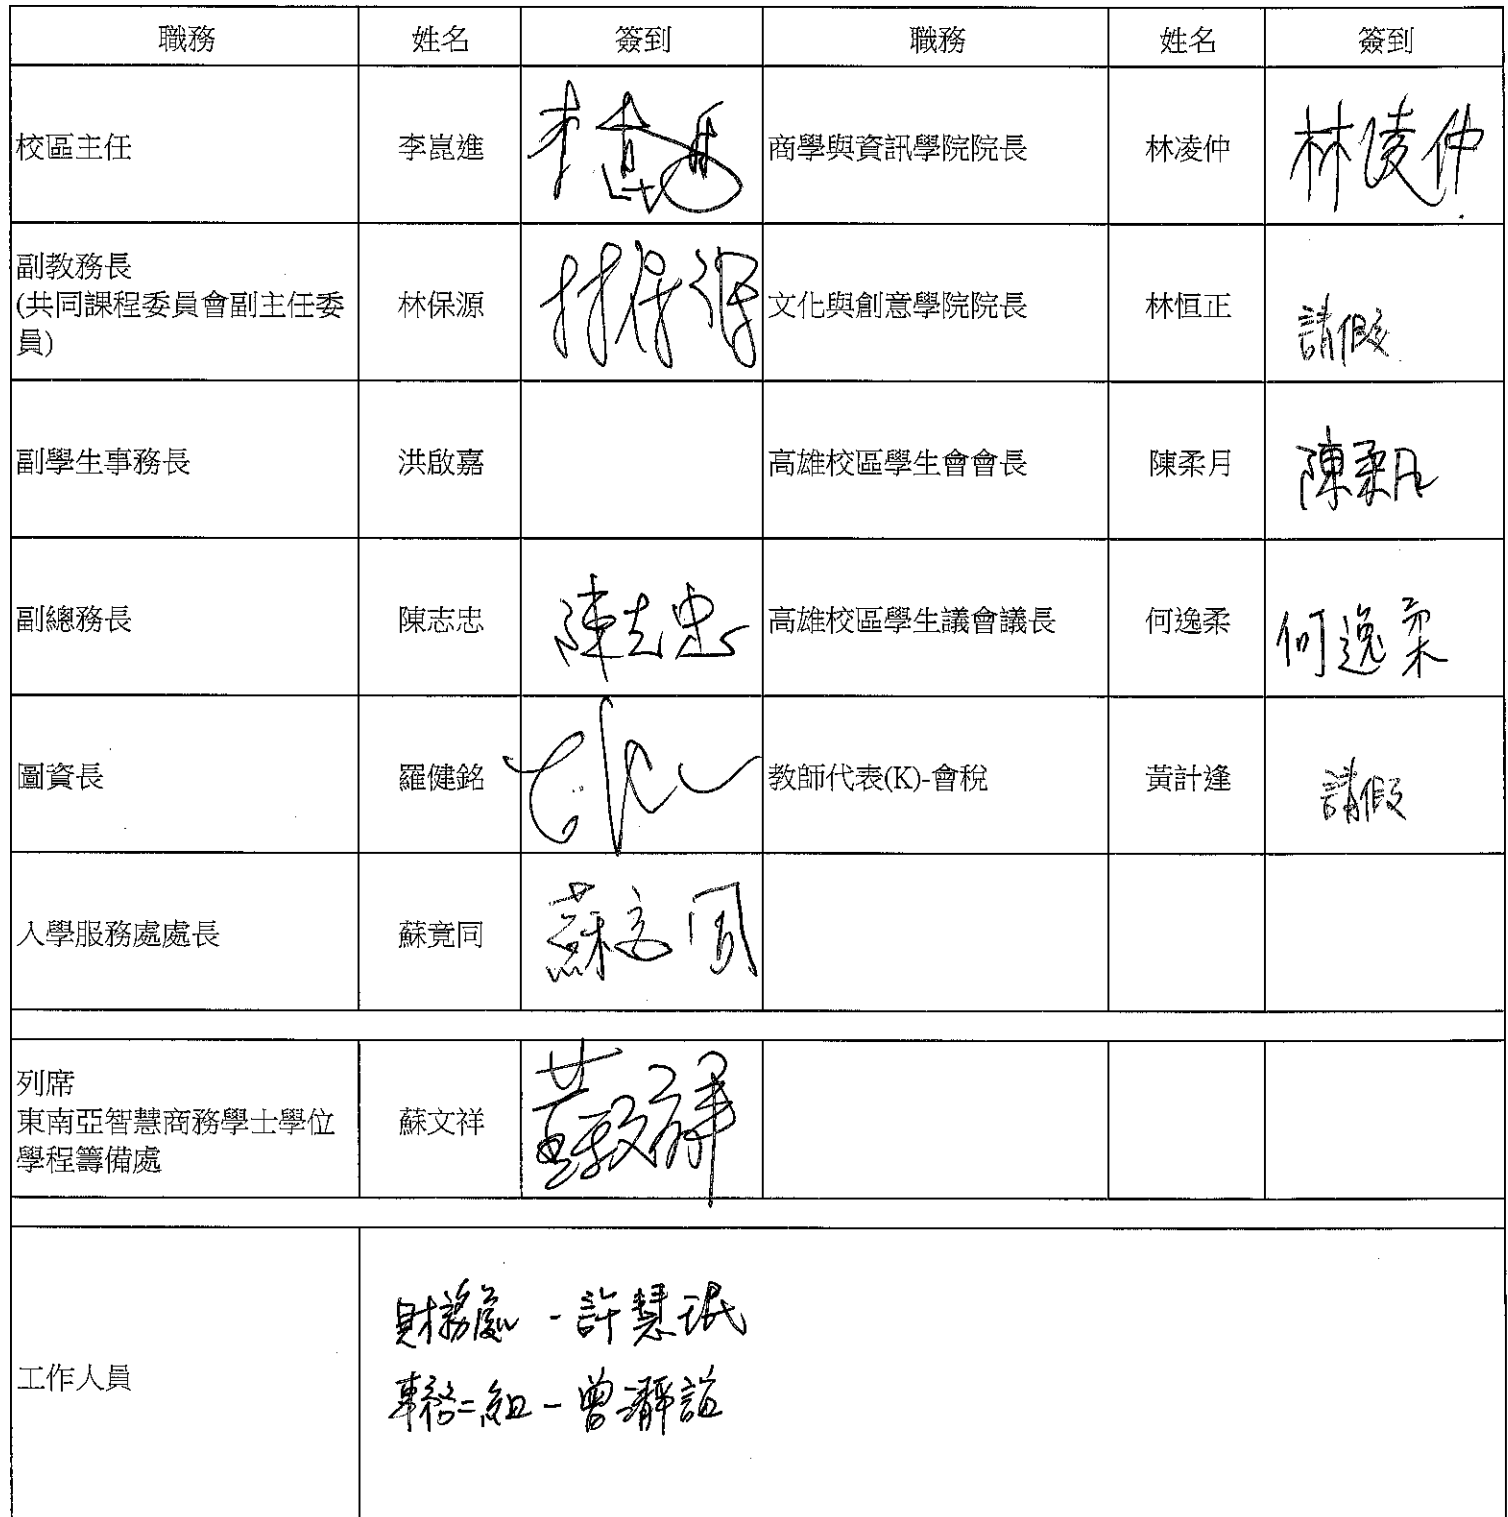 職務 姓名 簽到 職務 姓名 簽到
校區主任 李崑進 商學與資訊學院院長 林凌仲 林凌仲
副教務長
(共同課程委員會副主任委
員)
林保源 林保源 文化與創意學院院長 林恒正 請假
副學生事務長 洪啟嘉 高雄校區學生會會長 陳柔月 陳柔月
副總務長 陳志忠 陳志忠 高雄校區學生議會議長 何逸柔 何逸柔
圖資長 羅健銘 教師代表(K)-會稅 黃計逢 請假
入學服務處處長 蘇竟同
列席
東南亞智慧商務學士學位
學程籌備處
蘇文祥
工作人員
財務處 - 許慧珉
事務二組 - 曾瀞誼